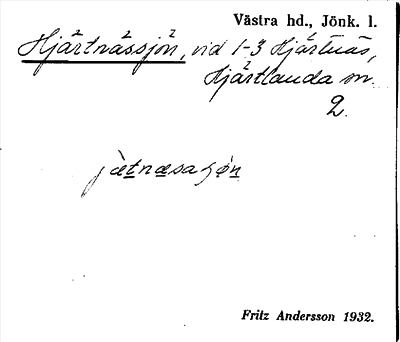 Västra hd., Jönk. l.
Hjärtnässjön, vid 1-3 Hjärtnäs,
Hjärtlanda sn.
2.
Fritz Andersson 1932.